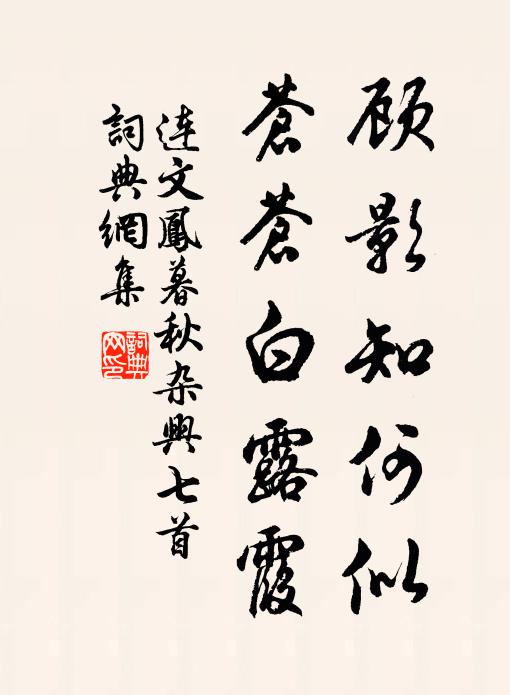 顾影知何似
蒼蒼白露霞
連文鳳暮秋杂興七首
詞典網集
詞典网印